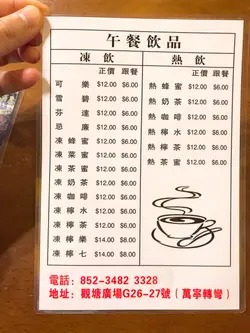 午餐飲品
凍飲
正價 跟餐
可樂 $12.00 $6.00
雪碧 $12.00 $6.00
芬達 $12.00 $6.00
忌廉 $12.00 $6.00
凍蜂蜜 $12.00 $6.00
凍菜蜜 $12.00 $6.00
凍茶蜜 $12.00 $6.00
凍奶茶 $12.00 $6.00
凍咖啡 $12.00 $6.00
凍檸水 $12.00 $6.00
凍檸茶 $12.00 $6.00
凍檸樂 $14.00 $8.00
凍檸七 $14.00 $8.00
熱飲
正價 跟餐
熱蜂蜜 $12.00 $6.00
熱奶茶 $12.00 $6.00
熱咖啡 $12.00 $6.00
熱檸水 $12.00 $6.00
熱檸茶 $12.00 $6.00
熱茶蜜 $12.00 $6.00
電話：852-3482 3328
地址：觀塘廣場G26-27號（萬寧轉彎）